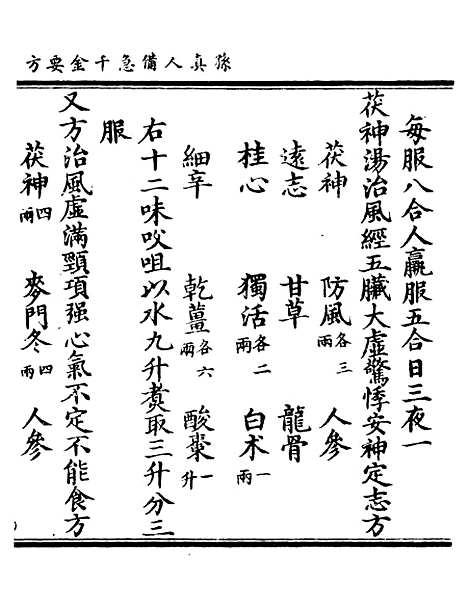 孫真人備急千金要方
每服八合人羸服五合日三夜一
茯神湯治風經五臟大虛驚悸安神定志方
茯神 防風各三兩 人參
遠志 甘草 龍骨
桂心 獨活各二兩 白术一兩
細辛 乾薑各六兩 酸棗一升
右十二味㕮咀以水九升煑取三升分三
服
又方治風虛滿頸項强心氣不定不能食方
茯神四兩 麥門冬四兩 人參